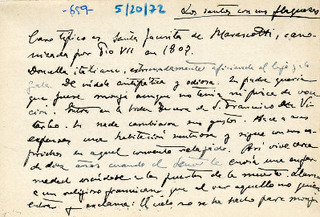 -659- 5/20/72 Los santos con sus flaquezas
Caso típico es Santa Jacinta de Marescotti, cano-
nizada por Pío VII en 1807.
Doncella italiana, extremadamente aficionada al lujo y la
gala. De vida antipática y odiosa. Su padre quería
que fuera monja aunque no tenía ni pizca de voca-
ción. Entra en la orden Tercera de S. Francisco de Vi-
terbo. Ni nada cambiaron sus gustos. Hace a sus
expensas una habitación suntuosa y sigue con sus ca-
prichos en aquel convento relajado. Así vive cerca
de doce años cuando el Señor le envía una enfer-
medad a las puertas de la muerte. Llama
a un religioso franciscano que al ver aquello no quiere
entrar y exclama: El cielo no se ha hecho para monjas